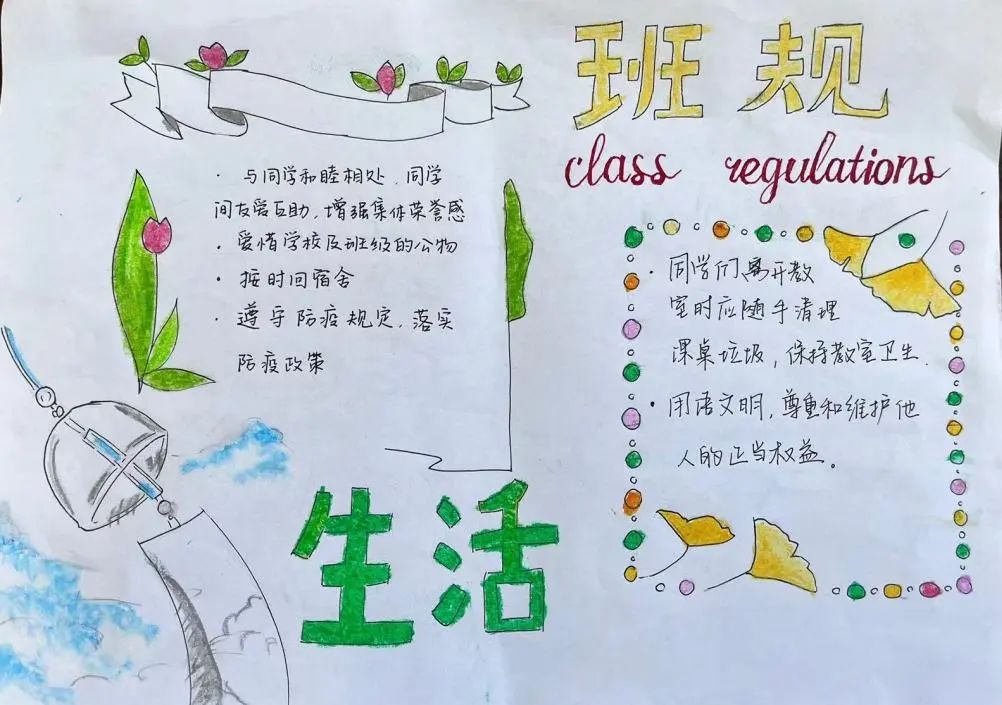 班规
class regulations
· 与同学和睦相处，同学
间友爱互助，增强集体荣誉感
· 爱惜学校及班级的公物
· 按时回宿舍
· 遵守防疫规定，落实
防疫政策
· 同学们离开教
室时应随手清理
课桌垃圾，保持教室卫生.
· 用语文明，尊重和维护他
人的正当权益。
生活